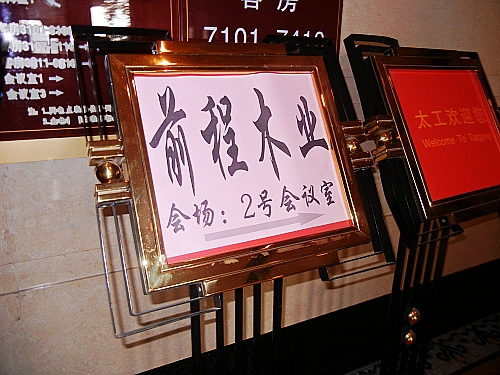 客房
7101-7410
会议室1→
会议室3→
前程木业
会场:2号会议室
太工欢迎您
Welcome To Taigong